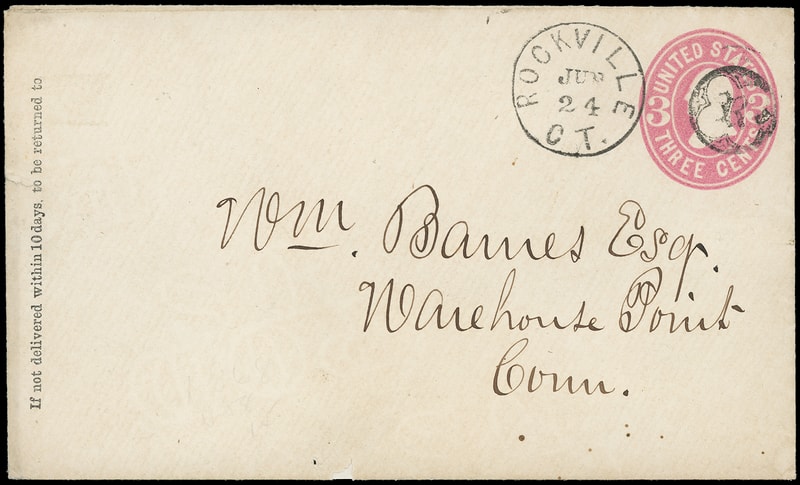 If not delivered within 10 days, to be returned to
ROCKVILLE
JUN
24
CT.
UNITED STATES
3 3
THREE CENTS
Wm. Barnes Esq.
Warehouse Point
Conn.